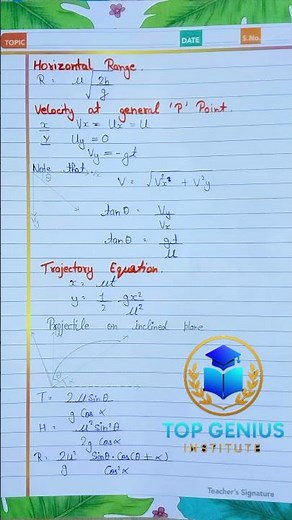 TOPIC
DATE
S.No.
Horizontal Range.
R = u√2h/g
Velocity at general 'P' Point.
x Vx = Ux = U
y Uy = 0
Vy = -gt
Note that,
V = √Vx² + V²y
= tanθ = Vy/Vx
tanθ = gt/u
Trajectory Equation.
x = ut
y = 1/2 gx²/u²
Projectile on inclined plane
T = 2usinθ/g cosα
H = u²sin²θ/2g cosα
R = 2u²/g sinθ·cos(θ+α)/cos²α
TOP GENIUS
INSTITUTE
Teacher's Signature